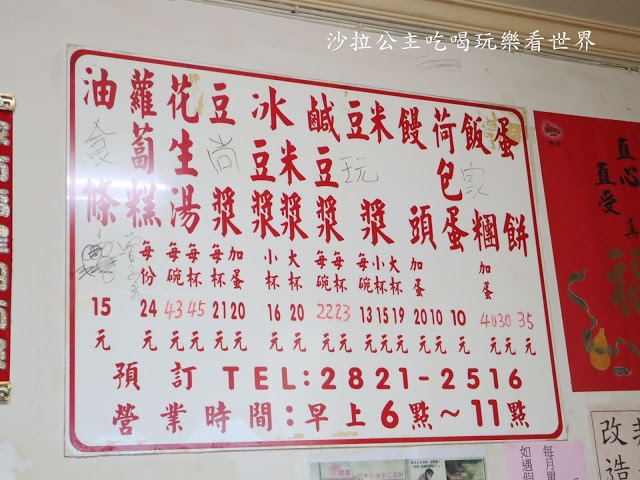 沙拉公主吃喝玩樂看世界
油條
蘿蔔糕
花生湯
豆漿
冰豆漿
米漿
鹹豆漿
豆
米漿
饅頭
荷包蛋
飯糰
蛋餅
尚
玩
家
每份
每碗
每杯
加蛋
小杯
大杯
每碗
每杯
每碗
小杯
大杯
加蛋
加蛋
15元
24元
43元
45元
21元
20元
16元
20元
22元
23元
13元
15元
19元
20元
10元
10元
40元
30元
35元
預訂TEL:2821-2516
營業時間:早上6點～11點
直心
直受
福
改
造
每月單
如遇假